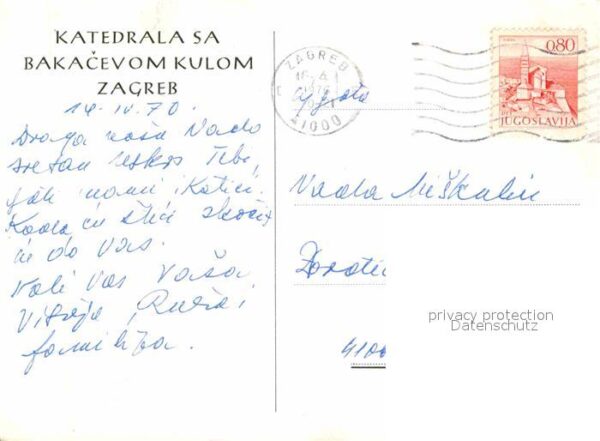 KATEDRALA SA
BAKAČEVOM KULOM
ZAGREB
14. IV. 70.
Draga naša Nado
sretan Uskrs Tebi,
i Katici.
Kada ću stići skočit
ću do Vas.
Voli Vas Vaša
Višnja, Ruža i
familija.
ZAGREB
41000
0.80
JUGOSLAVIJA
Nada Miškulin
4100
privacy protection
Datenschutz